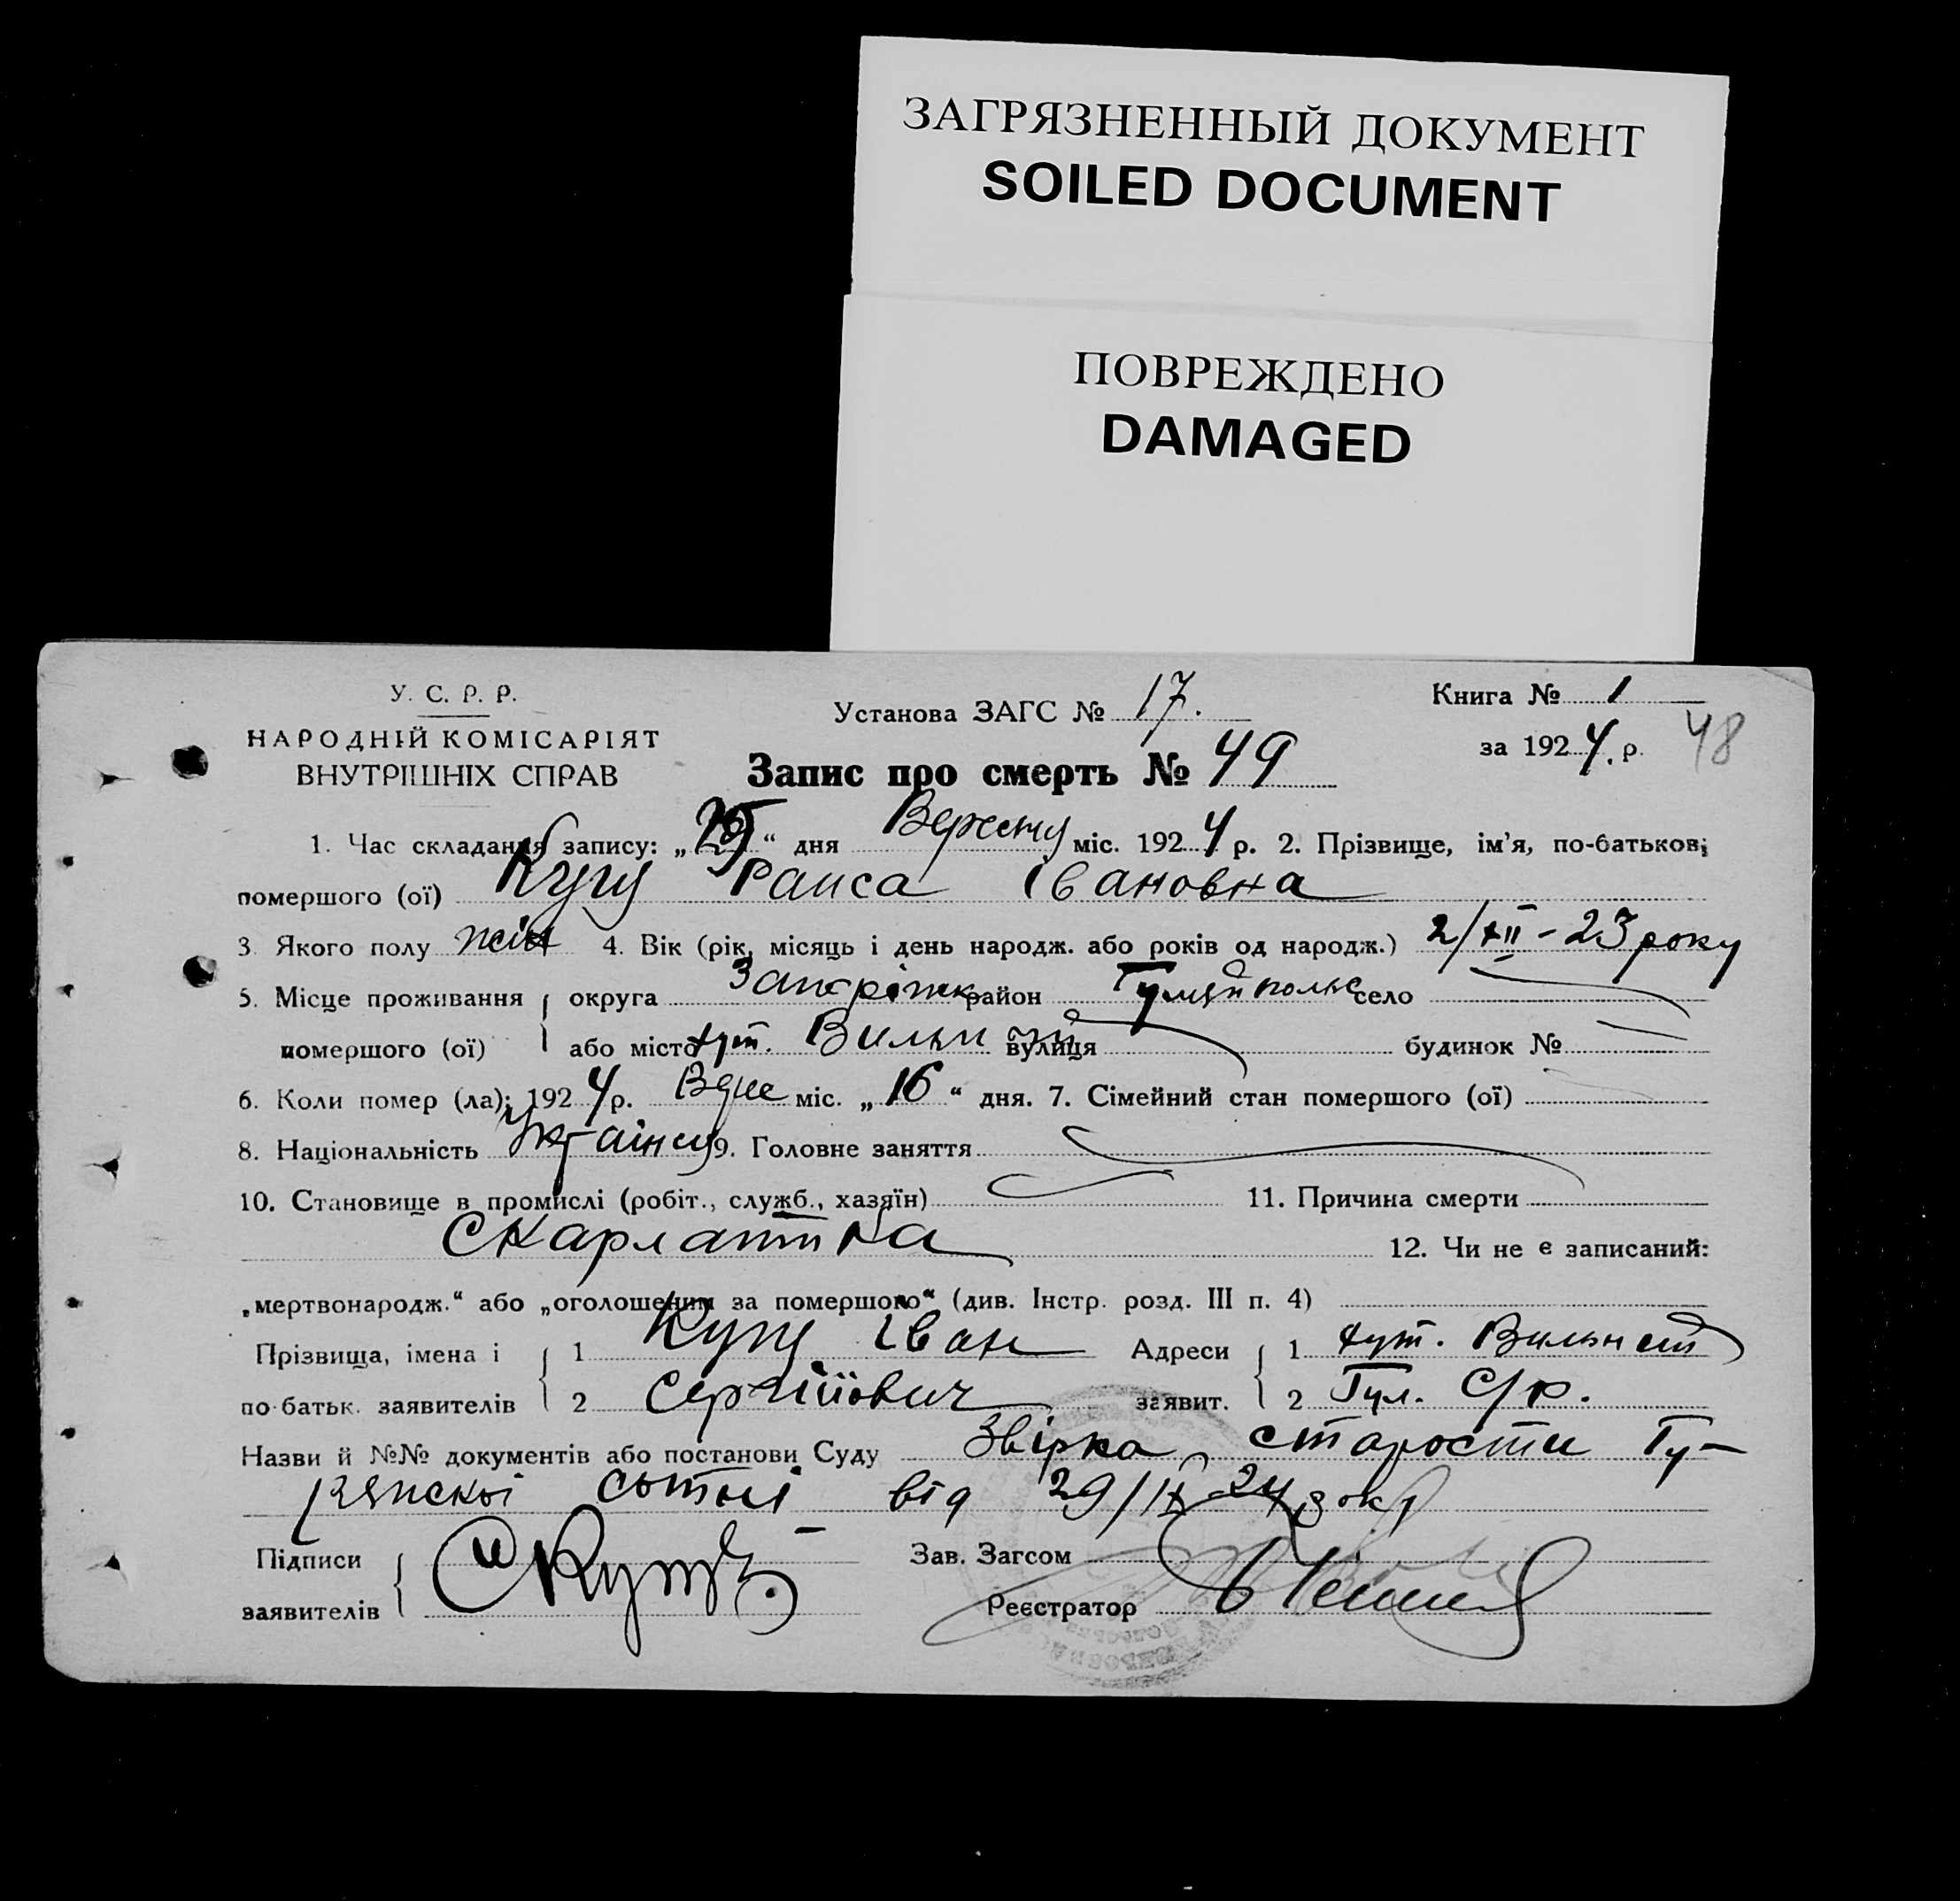 ЗАГРЯЗНЕННЫЙ ДОКУМЕНТ
SOILED DOCUMENT
ПОВРЕЖДЕНО
DAMAGED
У. С. Р. Р.
НАРОДНІЙ КОМІСАРІЯТ
ВНУТРІШНІХ СПРАВ
Установа ЗАГС № 17.
Книга № 1
за 1924. р. 48
Запис про смерть № 49
1. Час складання запису: „ “ дня Вересня міс. 1924 р. 2. Прізвище, ім'я, по-батькові
помершого (ої) Раиса Івановна
3. Якого полу жін 4. Вік (рік, місяць і день народж. або років од народж.) 2/XII - 23 року
5. Місце проживання округа Запоріжж район село
помершого (ої) або місто хут. вулиця будинок №
6. Коли помер (ла): 1924 р. міс. „16“ дня. 7. Сімейний стан помершого (ої)
8. Національність 9. Головне заняття
10. Становище в промислі (робіт., служб., хазяїн) 11. Причина смерти
Скарлатина 12. Чи не є записаний:
„мертвонародж.“ або „оголошеним за помершого“ (див. Інстр. розд. III п. 4)
Прізвища, імена і 1 Іван Адреси 1 хут.
по-батьк. заявителів 2 Сергійович заявит. 2 Гул. С/р.
Назви й №№ документів або постанови Суду старости Гу-
від 29/IX-24 року
Підписи Зав. Загсом
заявителів Реєстратор